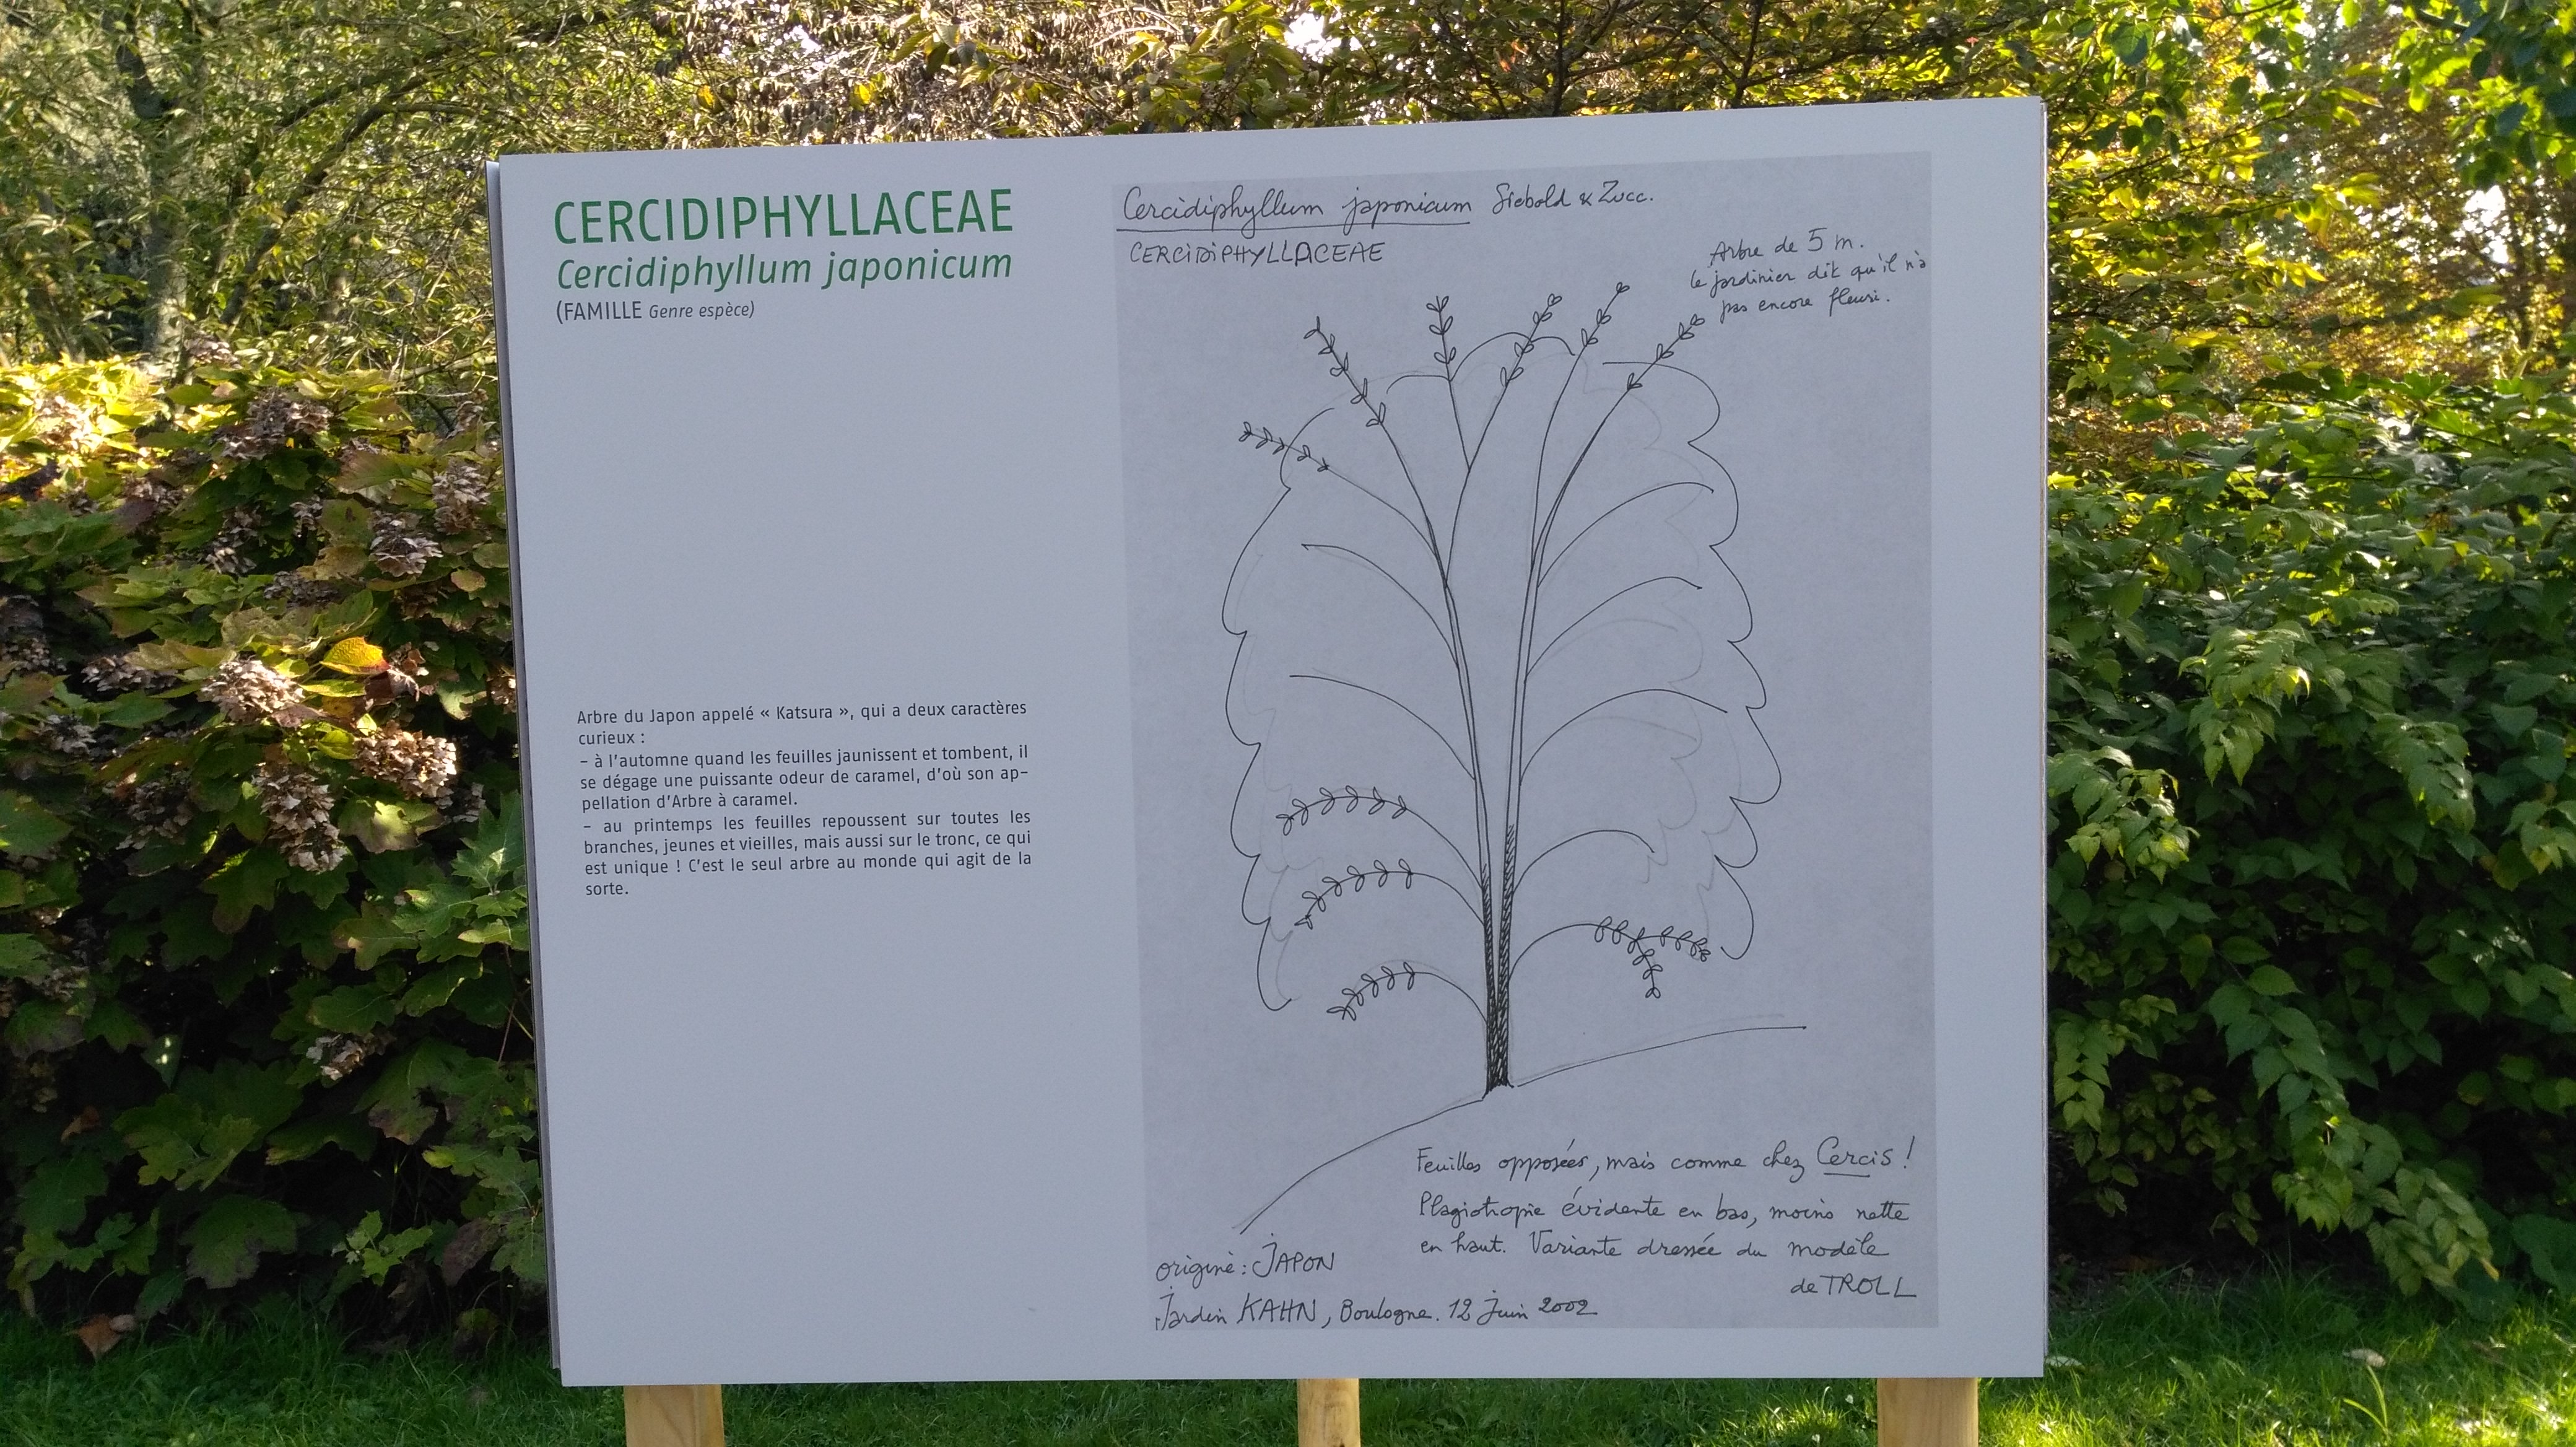 CERCIDIPHYLLACEAE
Cercidiphyllum japonicum
(FAMILLE Genre espèce)
Arbre du Japon appelé « Katsura », qui a deux caractères
curieux :
- à l'automne quand les feuilles jaunissent et tombent, il
se dégage une puissante odeur de caramel, d'où son ap-
pellation d'Arbre à caramel.
- au printemps les feuilles repoussent sur toutes les
branches, jeunes et vieilles, mais aussi sur le tronc, ce qui
est unique ! C'est le seul arbre au monde qui agit de la
sorte.
Cercidiphyllum japonicum Siebold & Zucc.
CERCIDIPHYLLACEAE
Arbre de 5 m.
le jardinier dit qu'il n'a
pas encore fleuri.
Feuilles opposées, mais comme chez Cercis !
Plagiotropie évidente en bas, moins nette
en haut. Variante dressée du modèle
de TROLL
origine : JAPON
Jardin KAHN, Boulogne. 12 juin 2002